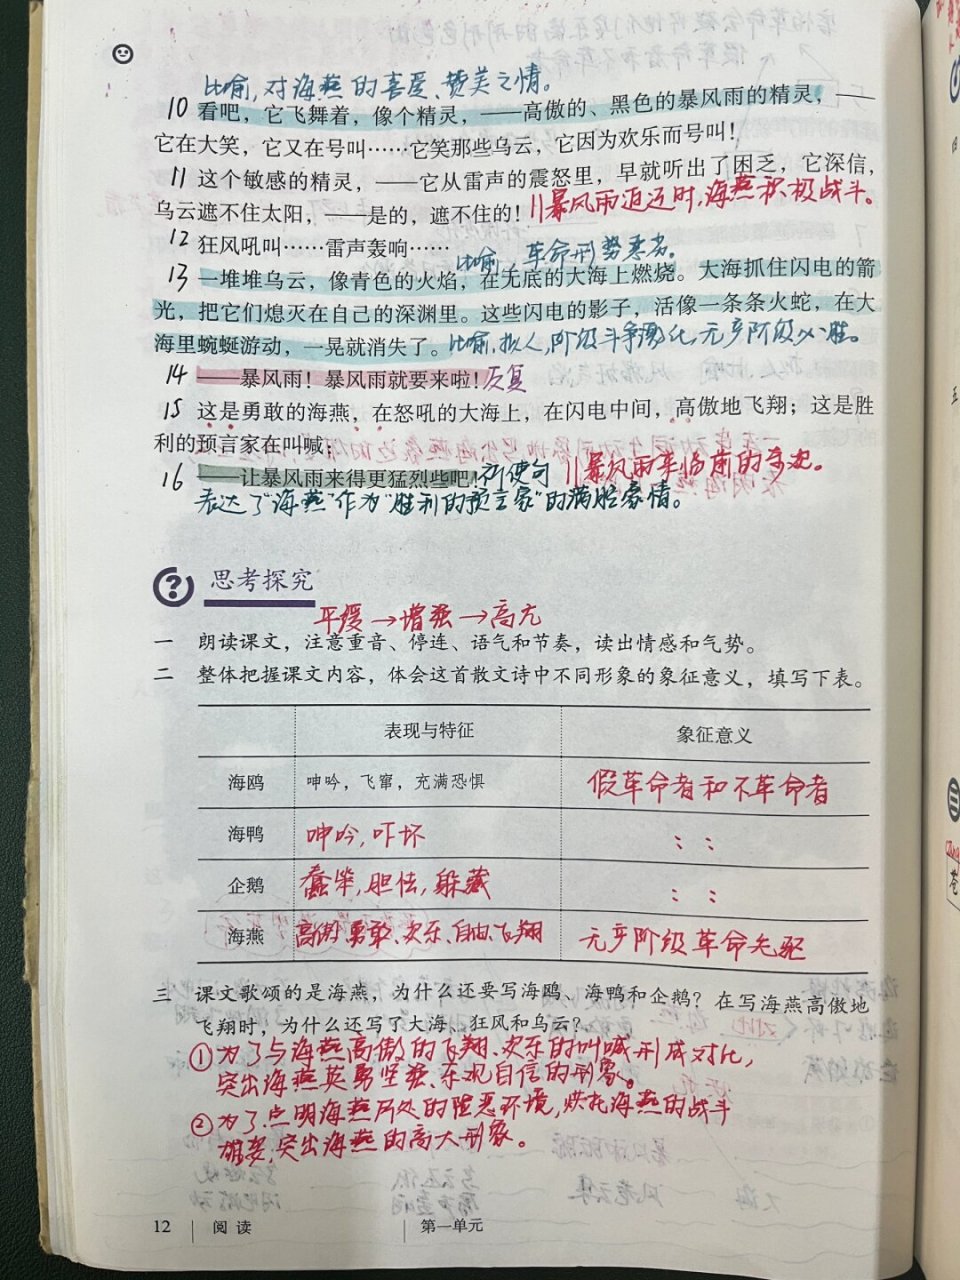 比喻,对海燕的喜爱、赞美之情。
10 看吧，它飞舞着，像个精灵，——高傲的、黑色的暴风雨的精灵，——
它在大笑，它又在号叫……它笑那些乌云，它因为欢乐而号叫！
11 这个敏感的精灵，——它从雷声的震怒里，早就听出了困乏，它深信，
乌云遮不住太阳，——是的，遮不住的！ 暴风雨迫近时,海燕积极战斗。
12 狂风吼叫……雷声轰响……
比喻, 革命形势恶劣。
13 一堆堆乌云，像青色的火焰，在无底的大海上燃烧。大海抓住闪电的箭
光，把它们熄灭在自己的深渊里。这些闪电的影子，活像一条条火蛇，在大
海里蜿蜒游动，一晃就消失了。比喻,拟人,阶级斗争激化,无产阶级必胜。
14 ——暴风雨！暴风雨就要来啦！反复
15 这是勇敢的海燕，在怒吼的大海上，在闪电中间，高傲地飞翔；这是胜
利的预言家在叫喊：
16 ——让暴风雨来得更猛烈些吧！祈使句 暴风雨来临前的
表达了"海燕"作为"胜利的预言家"的满腔豪情。
思考探究
平缓→增强→高亢
一 朗读课文，注意重音、停连、语气和节奏，读出情感和气势。
二 整体把握课文内容，体会这首散文诗中不同形象的象征意义，填写下表。
表现与特征 象征意义
海鸥 呻吟，飞窜，充满恐惧 假革命者和不革命者
海鸭 呻吟,吓坏 ：：
企鹅 蠢笨,胆怯,躲藏 ：：
海燕 高傲、勇敢、欢乐、自由飞翔 无产阶级革命先驱
三 课文歌颂的是海燕，为什么还要写海鸥、海鸭和企鹅？在写海燕高傲地
飞翔时，为什么还写了大海、狂风和乌云？
①为了与海燕高傲的飞翔、欢乐的叫喊形成对比,
突出海燕英勇坚强、乐观自信的形象。
②为了点明海燕所处的险恶环境,烘托海燕的战斗
雄姿,突出海燕的高大形象。
12 阅读 第一单元